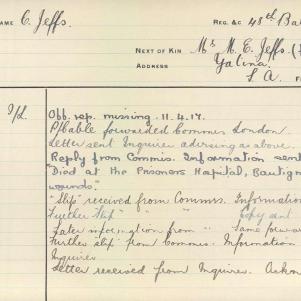 NAME C. Jeffs.
REG. &C. 48th Bat
NEXT OF KIN Mrs M. E. Jeffs. (
ADDRESS Yatina.
S.A.
Off. rep. missing. 11.4.17.
P/Cable forwarded Commis London
Letter sent Inquirer advising as above.
Reply from Commis. Information sent
"Died at the Prisoners Hospital,
wounds."
"Slip" received from Comms. Information
Further Slip " " " Copy sent
Later information from " Same forwar
Further slip from Commis. Information
Inquirer
Letter received from Inquirer.